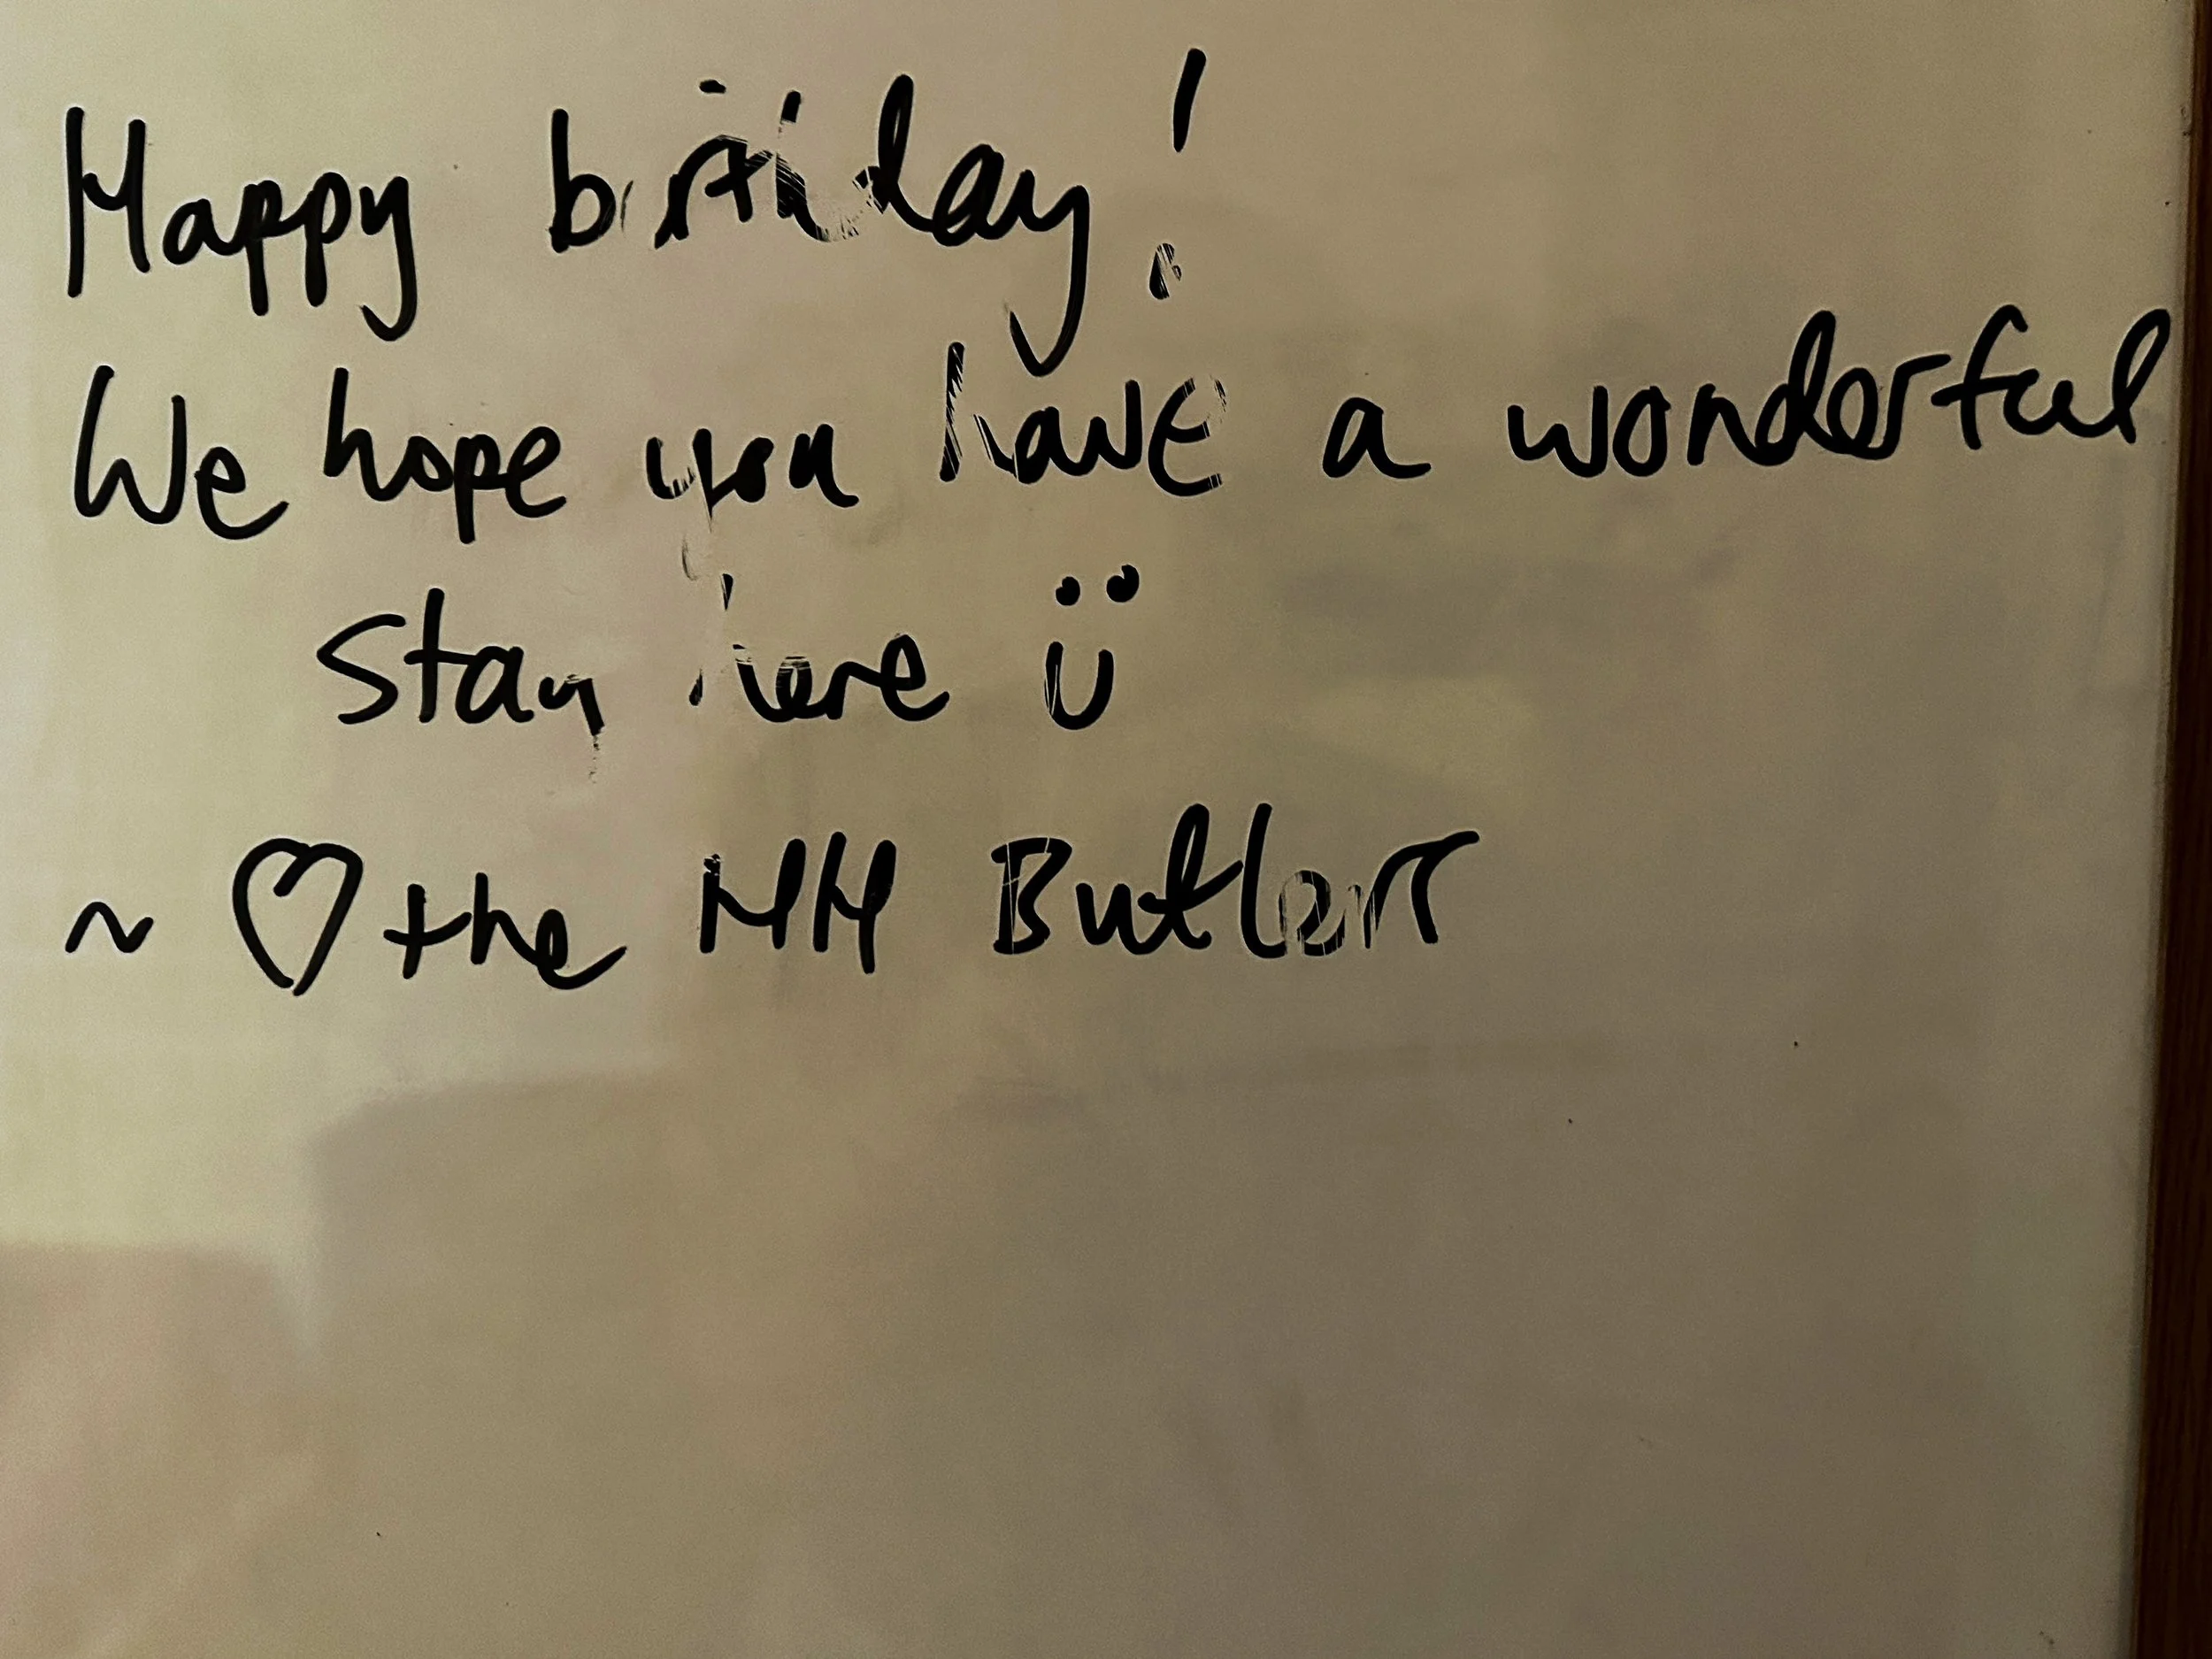 Happy birthday!
We hope you have a wonderful
stay here ü
~ ♡ the MM Butlers